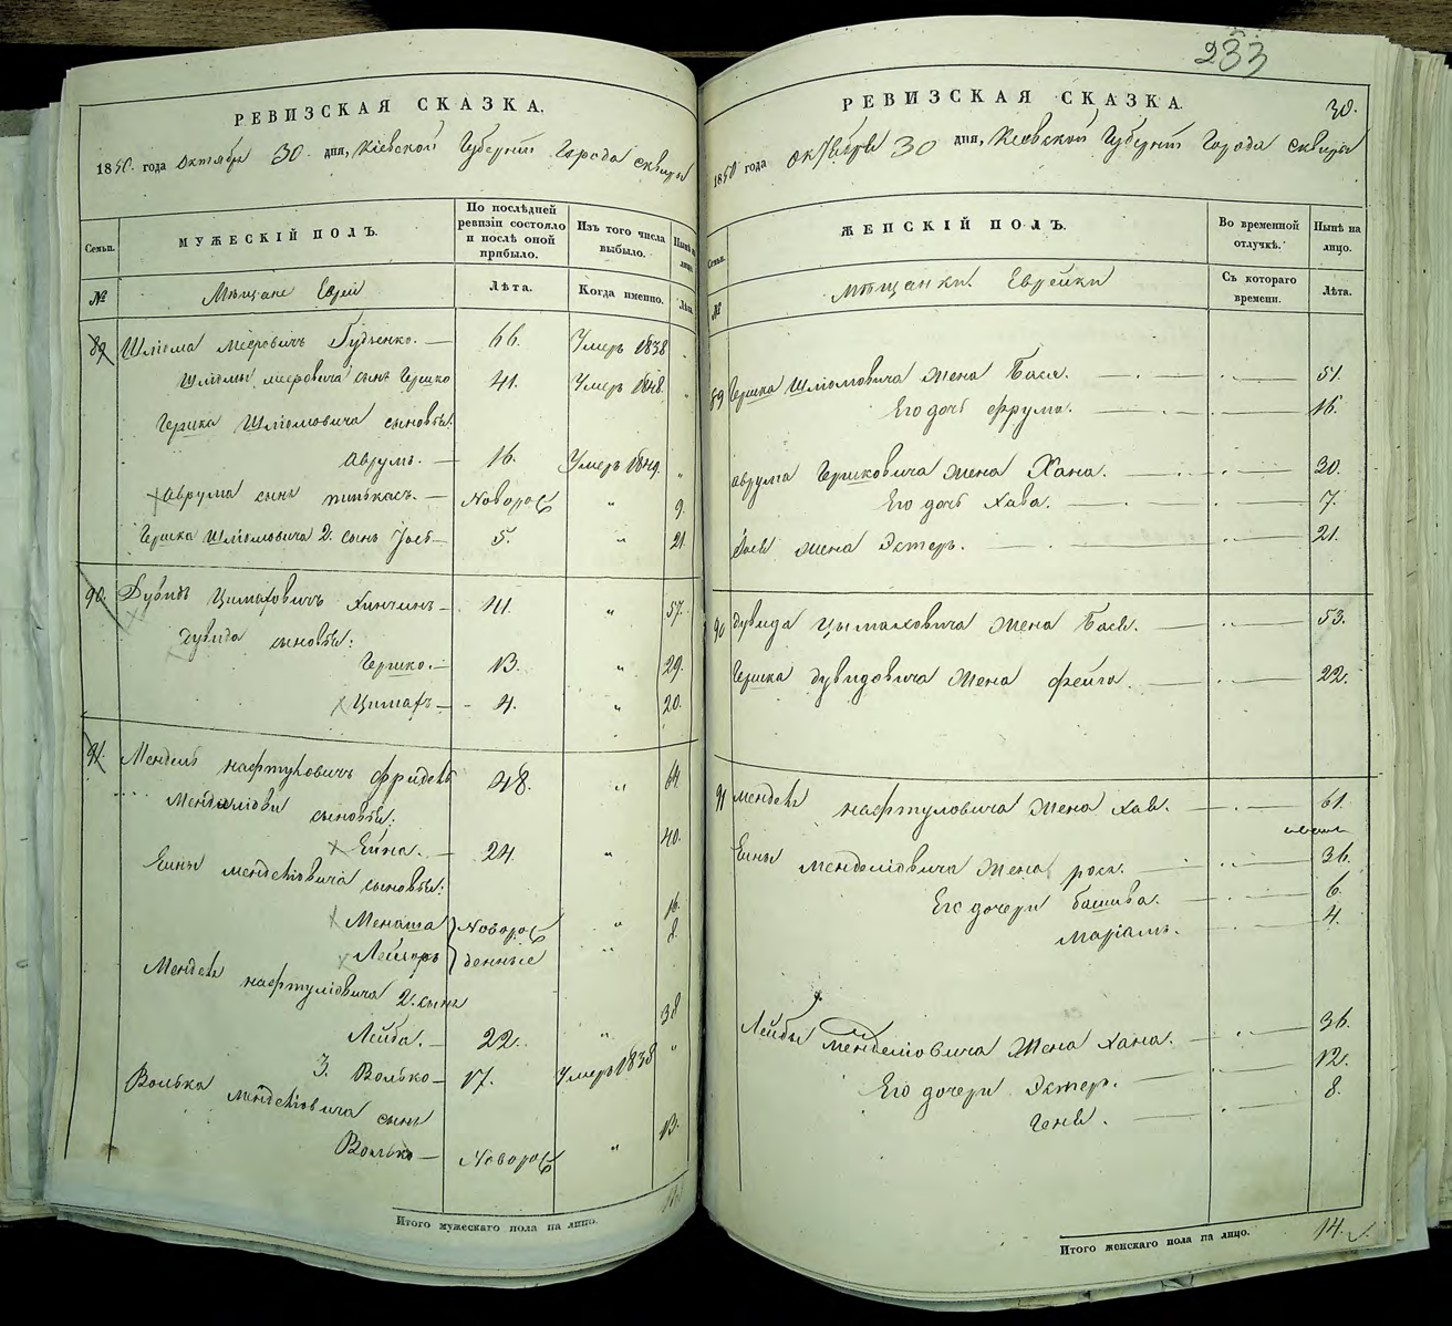 РЕВИЗСКАЯ СКАЗКА.
1850. года октября 30. дня, Кіевской Губерніи Города сквиры
Семьи.
МУЖЕСКІЙ ПОЛЪ.
По послѣдней ревизіи состояло и послѣ оной прибыло.
Изъ того числа выбыло.
Нынѣ на лицо.
№
Мѣщане Евреи
Лѣта.
Когда именно.
Лѣта.
89 Шліома Мееровичъ Гудзенко. — 66. Умеръ 1838 "
Шліомы мееровича сынъ Гершко 41. Умеръ 1848. "
Гершка Шліомовича сыновья:
Аврумъ. — 16. Умеръ 1849. "
Аврума сынъ пинькасъ. — Новорож " 9.
Гершка Шліомовича 2. сынъ Іось — 5. " 21.
90. Дувидъ Цимаховичъ — 41. " 57.
Дувида сыновья:
Гершко. — 13. " 29.
Цимахъ — 4. " 20.
91. Мендель нафтуловичъ фридель 48. " 64.
Менделіови сыновья:
Ейна. — 24. " 40.
Ейны менделіовича сыновья:
Менаша Новорож " 16.
Лейзоръ денные " 8.
Мендель нафтуліовича 2. сынъ
Лейба. — 22. " 38
3. Волько — 17. Умеръ 1838 "
Волька менделіовича сынъ
Волько — Новорож " 13.
Итого мужескаго пола на лицо.
233
30.
РЕВИЗСКАЯ СКАЗКА.
1850 года октября 30 дня, Кіевской Губерніи Города сквиры
Семьи.
ЖЕНСКІЙ ПОЛЪ.
Во временной отлучкѣ.
Нынѣ на лицо.
№
мѣщанки Еврейки
Съ котораго времени.
Лѣта.
89 Гершка Шліомовича жена Бася. — 51.
Его дочь фрума. — 16.
Аврума Гершковича жена Хана. — 30.
Его дочь Хава. — 7.
Іося жена Эстеръ. — 21.
90 Дувида Цымаховича жена Бася. — 53.
Гершка дувидовича жена фейга. — 22.
91 Мендель нафтуловича жена хая. — 61.
Ейны менделіовича жена роса. — 36.
Его дочери башива. — 6.
маріамъ. — 4.
Лейбы менделіовича жена хана. — 36.
Его дочери Эстер. — 12.
геня. — 8.
Итого женскаго пола на лицо. 14.